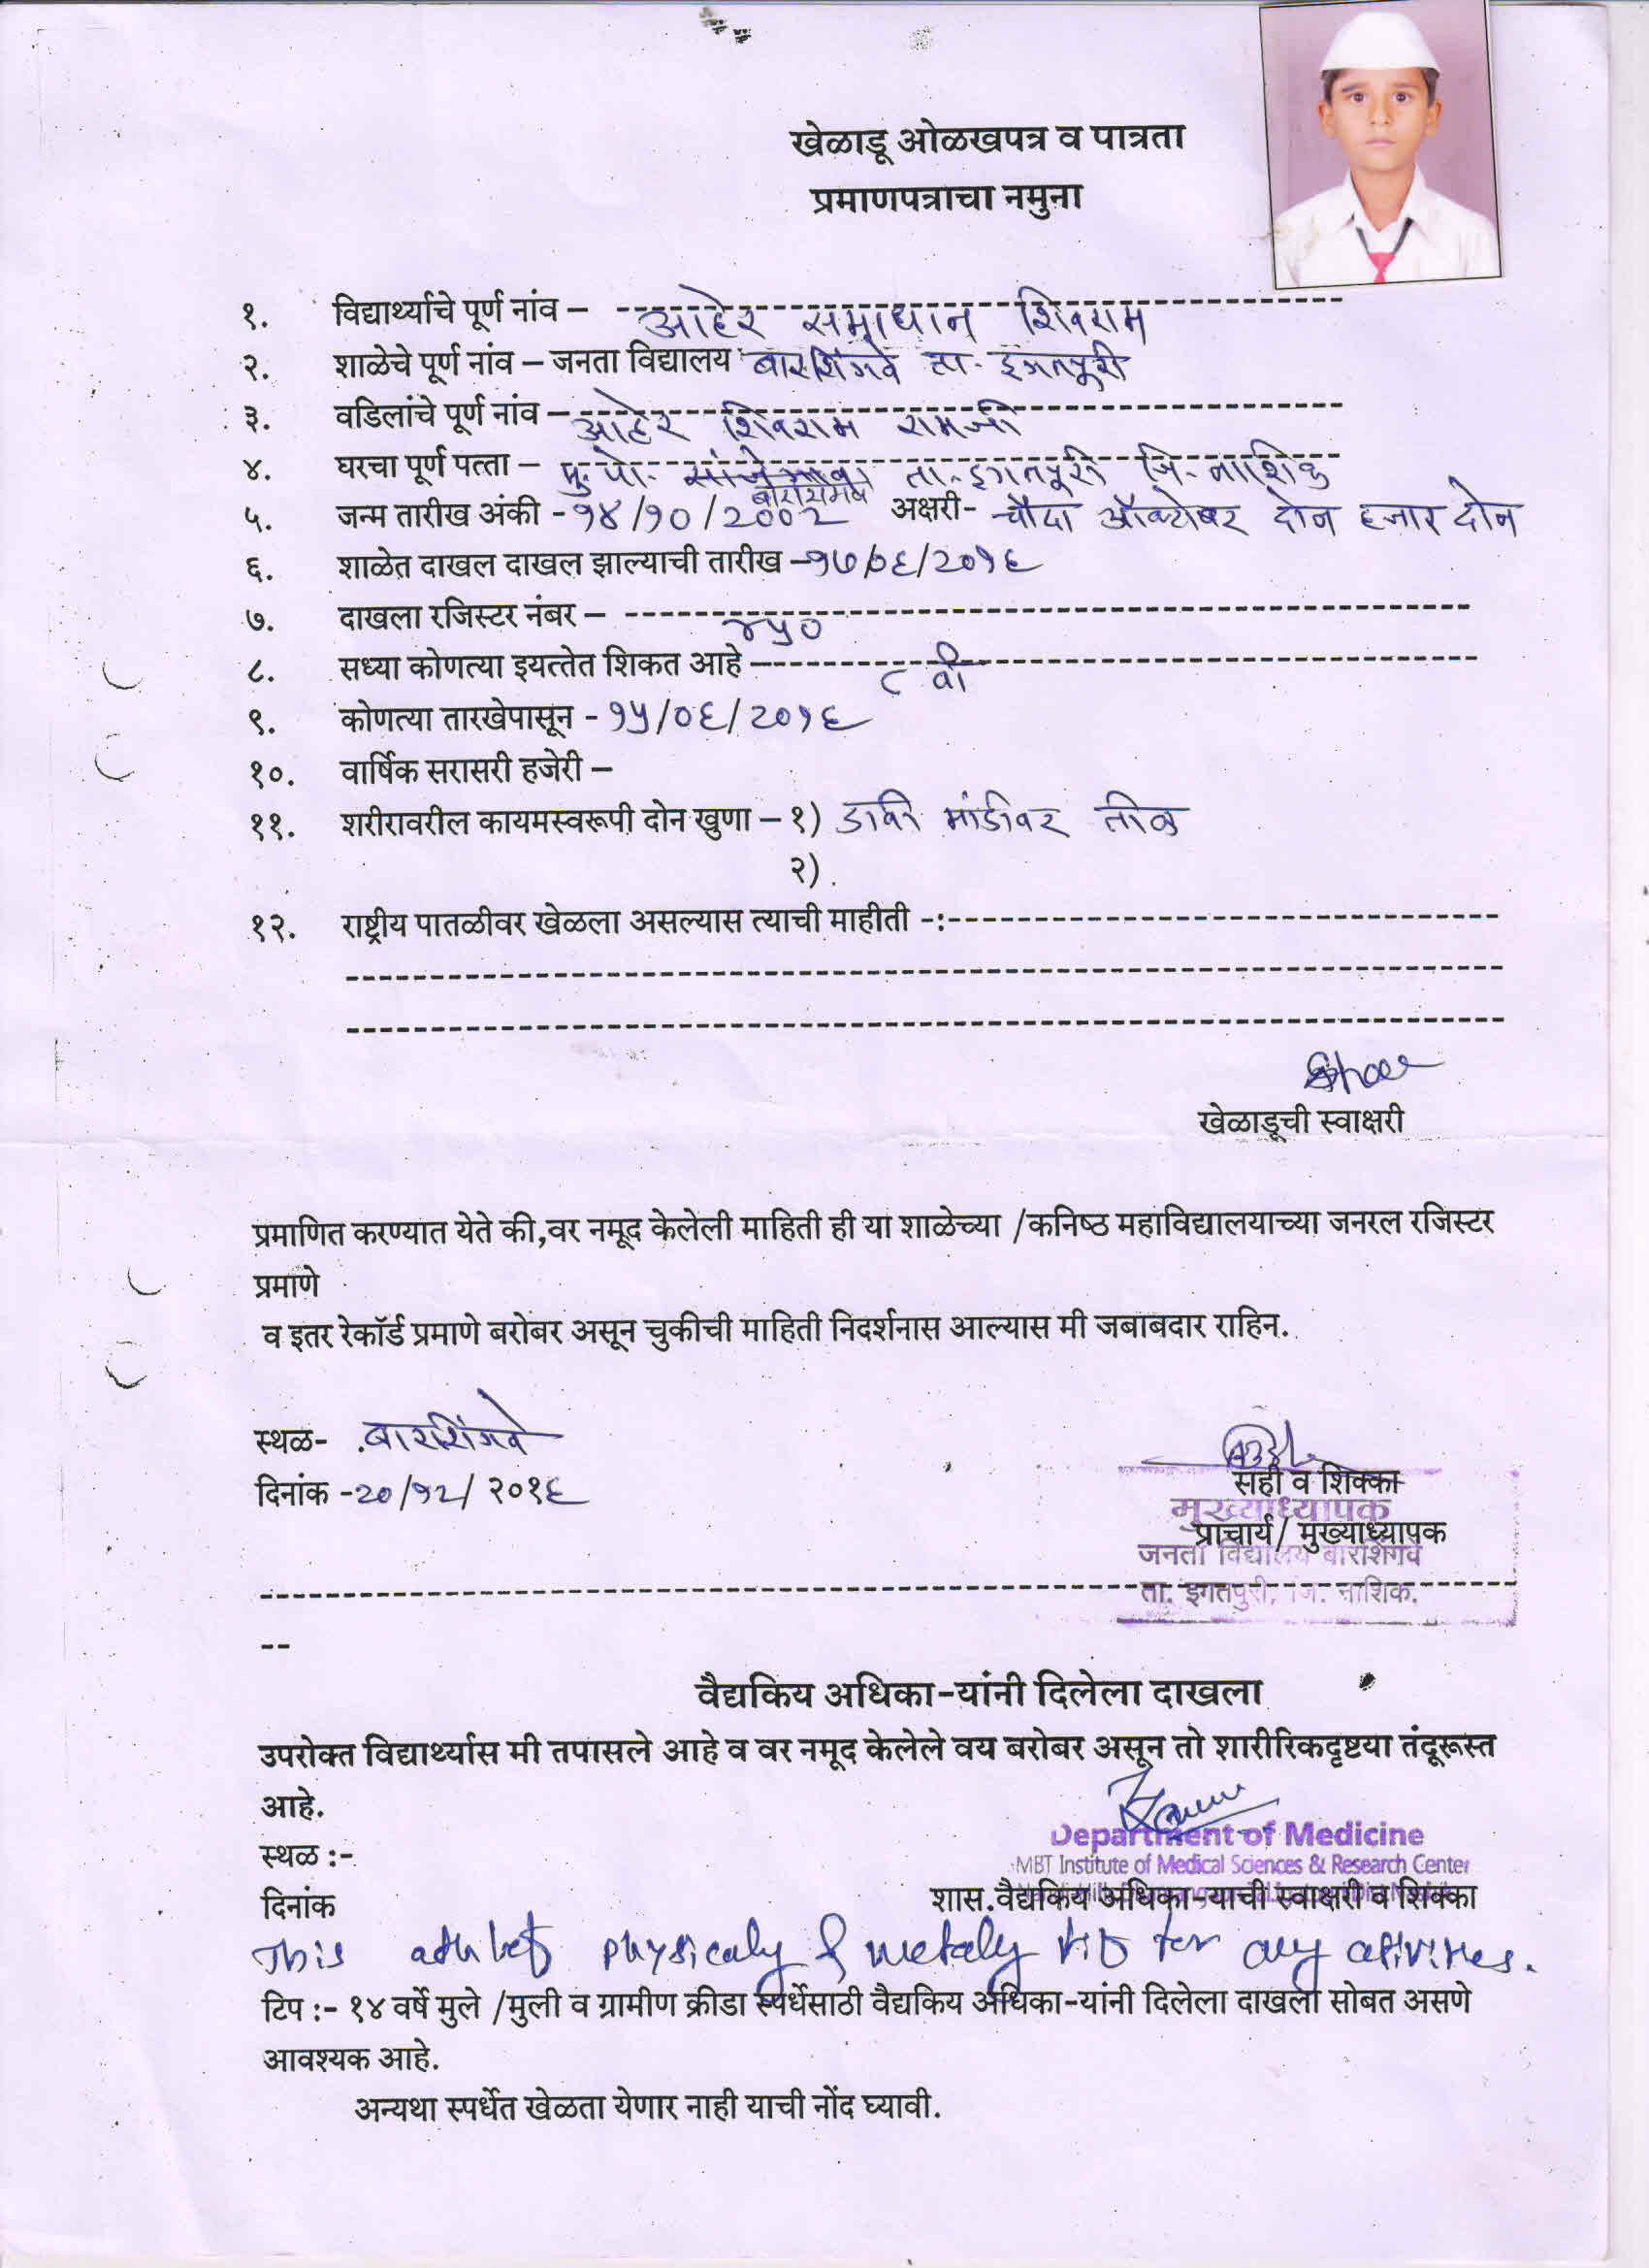 खेळाडू ओळखपत्र व पात्रता
प्रमाणपत्राचा नमुना
१. विद्यार्थ्याचे पूर्ण नांव – आहेर समाधान शिवराम
२. शाळेचे पूर्ण नांव – जनता विद्यालय बारशिंगवे ता. इगतपूरी
३. वडिलांचे पूर्ण नांव – आहेर शिवराम रामजी
४. घरचा पूर्ण पत्ता – मु. पो. ता. इगतपूरी जि. नाशिक
५. जन्म तारीख अंकी - १४/१०/2002 अक्षरी- चौदा ऑक्टोबर दोन हजार दोन
६. शाळेत दाखल दाखल झाल्याची तारीख – १७/०६/२०१६
७. दाखला रजिस्टर नंबर – ४५०
८. सध्या कोणत्या इयत्तेत शिकत आहे – ८ वी
९. कोणत्या तारखेपासून - १५/०६/२०१६
१०. वार्षिक सरासरी हजेरी –
११. शरीरावरील कायमस्वरूपी दोन खुणा – १) डावी मांडीवर तीळ
२)
१२. राष्ट्रीय पातळीवर खेळला असल्यास त्याची माहीती -:-
खेळाडूची स्वाक्षरी
प्रमाणित करण्यात येते की,वर नमूद केलेली माहिती ही या शाळेच्या /कनिष्ठ महाविद्यालयाच्या जनरल रजिस्टर
प्रमाणे
व इतर रेकॉर्ड प्रमाणे बरोबर असून चुकीची माहिती निदर्शनास आल्यास मी जबाबदार राहिन.
स्थळ- बारशिंगवे
दिनांक -२०/१२/ २०१६
सही व शिक्का
मुख्याध्यापक
प्राचार्य/ मुख्याध्यापक
जनता विद्यालय बारशिंगवे
ता. इगतपुरी, जि. नाशिक.
--
वैद्यकिय अधिका-यांनी दिलेला दाखला
उपरोक्त विद्यार्थ्यास मी तपासले आहे व वर नमूद केलेले वय बरोबर असून तो शारीरिकदृष्टया तंदूरूस्त
आहे.
Department of Medicine
स्थळ :-
MBT Institute of Medical Sciences & Research Center
दिनांक
शास.वैद्यकिय अधिका-याची स्वाक्षरी व शिक्का
This physicaly & metaly fit for any
टिप :- १४ वर्षे मुले /मुली व ग्रामीण क्रीडा स्पर्धेसाठी वैद्यकिय अधिका-यांनी दिलेला दाखला सोबत असणे
आवश्यक आहे.
अन्यथा स्पर्धेत खेळता येणार नाही याची नोंद घ्यावी.